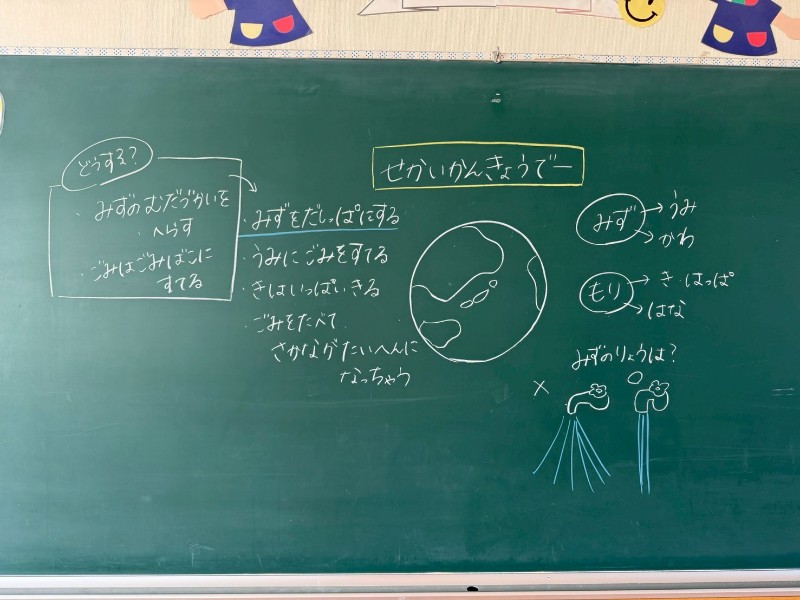 せかいかんきょうでー
どうする？
・みずのむだづかいを
へらす
・ごみはごみばこに
すてる
・みずをだしっぱにする
・うみにごみをすてる
・きはいっぱいきる
・ごみをたべて
さかながたいへんに
なっちゃう
みず→うみ
→かわ
もり→き・はっぱ
→はな
みずのりょうは？
× ○